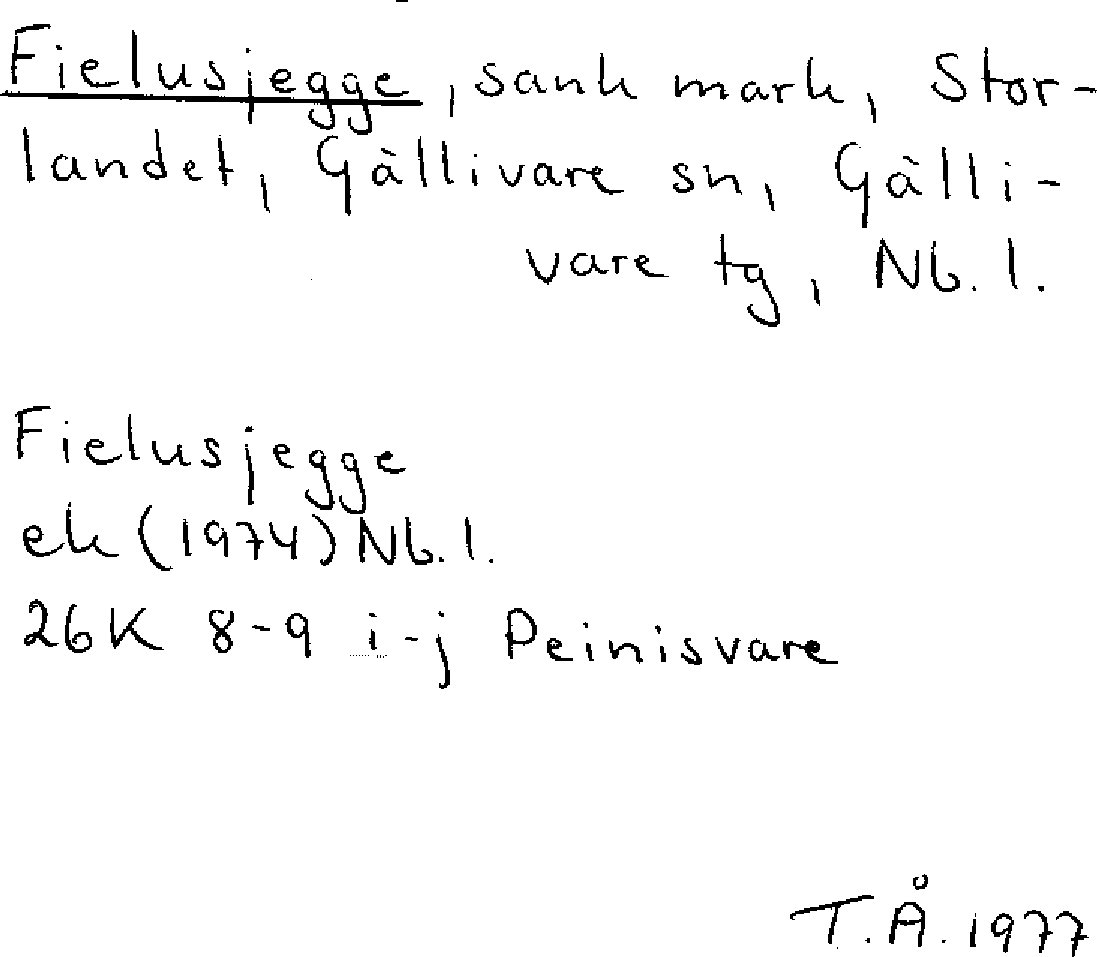 Fielusjegge, sank mark, Stor-
landet, Gällivare sn, Gälli-
vare tg, Nb. l.
Fielusjegge
ek (1974) Nb. l.
26K 8-9 i-j Peinisvare
T.Å. 1977